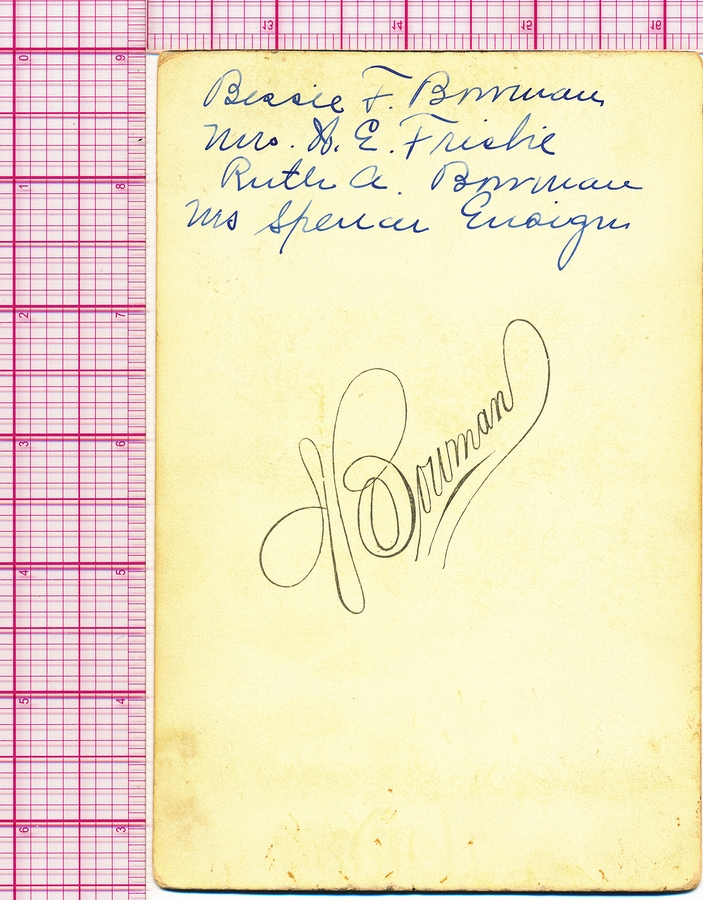 13 14 15 16
0 9
1 8
2 7
3 6
4 5
5 4
6 3
Bessie F. Bowman
Mrs. H. E. Frisbie
Ruth A. Bowman
Mrs Spencer Ensign
Bowman